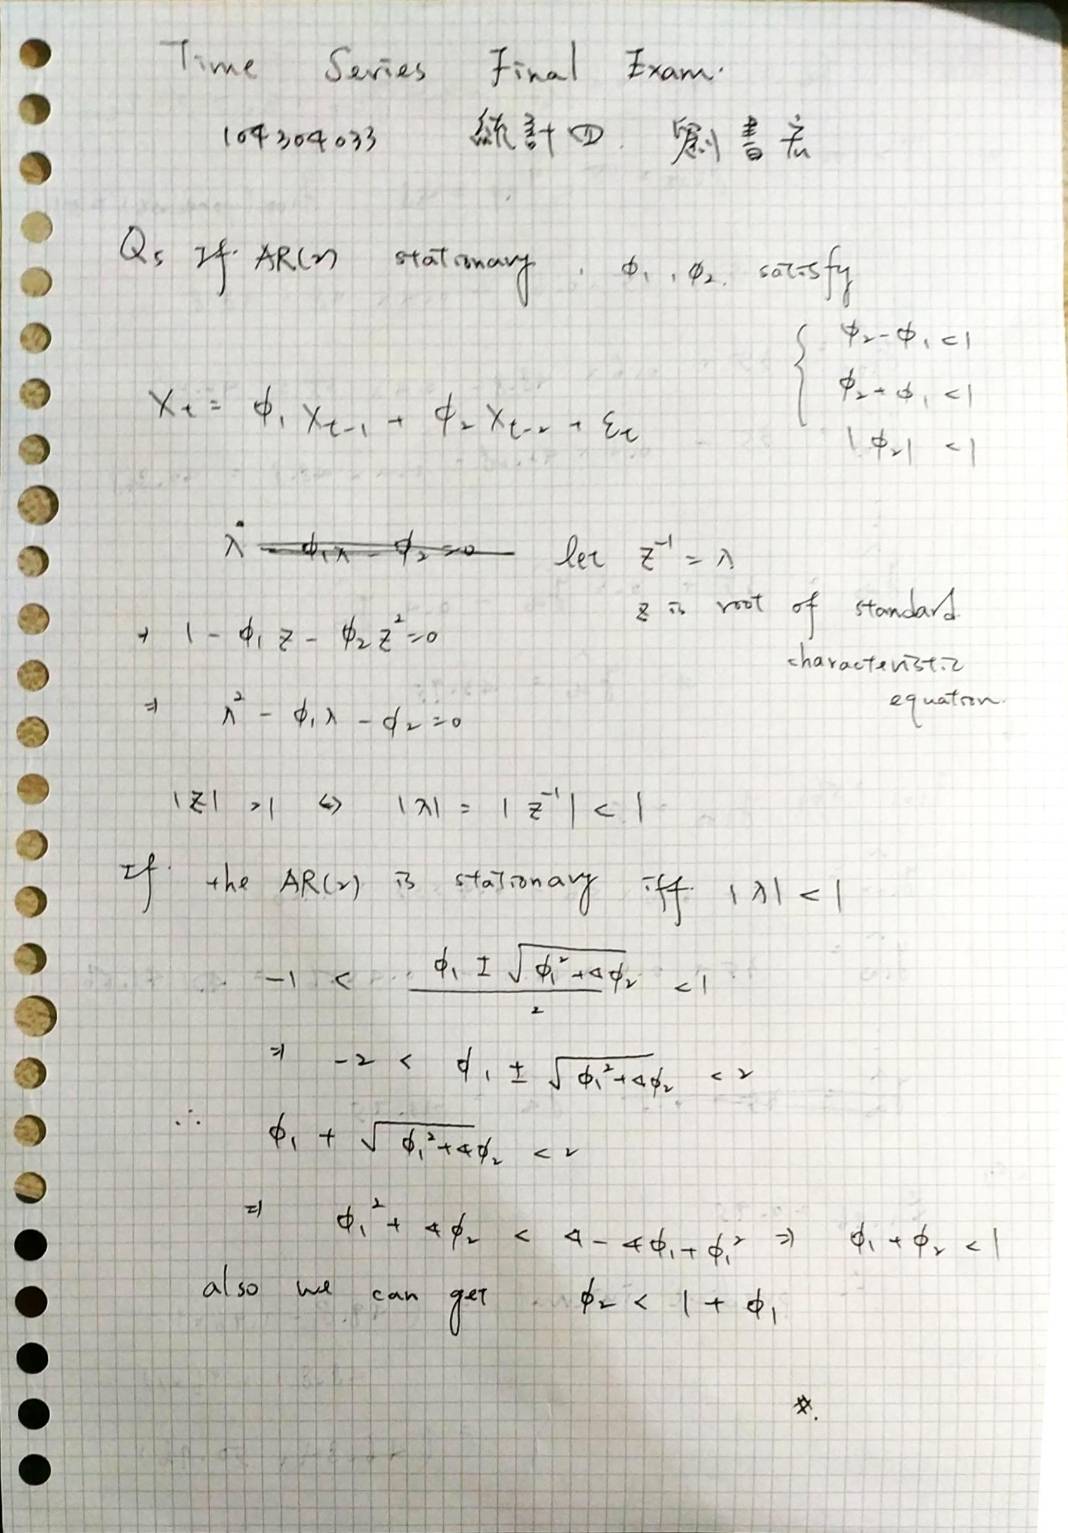 Time Series Final Exam.
104304033 統計四 劉書宏
Q5 If AR(2) stationary, ϕ₁, ϕ₂ satisfy
{ ϕ₂-ϕ₁ <1
ϕ₂+ϕ₁ <1
|ϕ₂| <1
Xt = ϕ₁ Xt-1 + ϕ₂ Xt-2 + εt
λ² - ϕ₁λ - ϕ₂ =0 let z⁻¹ = λ
z is root of standard
characteristic
equation.
⇒ 1 - ϕ₁ z - ϕ₂ z² =0
⇒ λ² - ϕ₁λ - ϕ₂ =0
|z| >1 ⇔ |λ| = |z⁻¹| < 1
If the AR(2) is stationary iff |λ| < 1
-1 < (ϕ₁ ± √(ϕ₁²+4ϕ₂))/2 <1
⇒ -2 < ϕ₁ ± √(ϕ₁²+4ϕ₂) <2
∴ ϕ₁ + √(ϕ₁²+4ϕ₂) <2
⇒ ϕ₁² + 4ϕ₂ < 4 - 4ϕ₁ + ϕ₁² ⇒ ϕ₁ + ϕ₂ <1
also we can get ϕ₂ < 1 + ϕ₁
※.